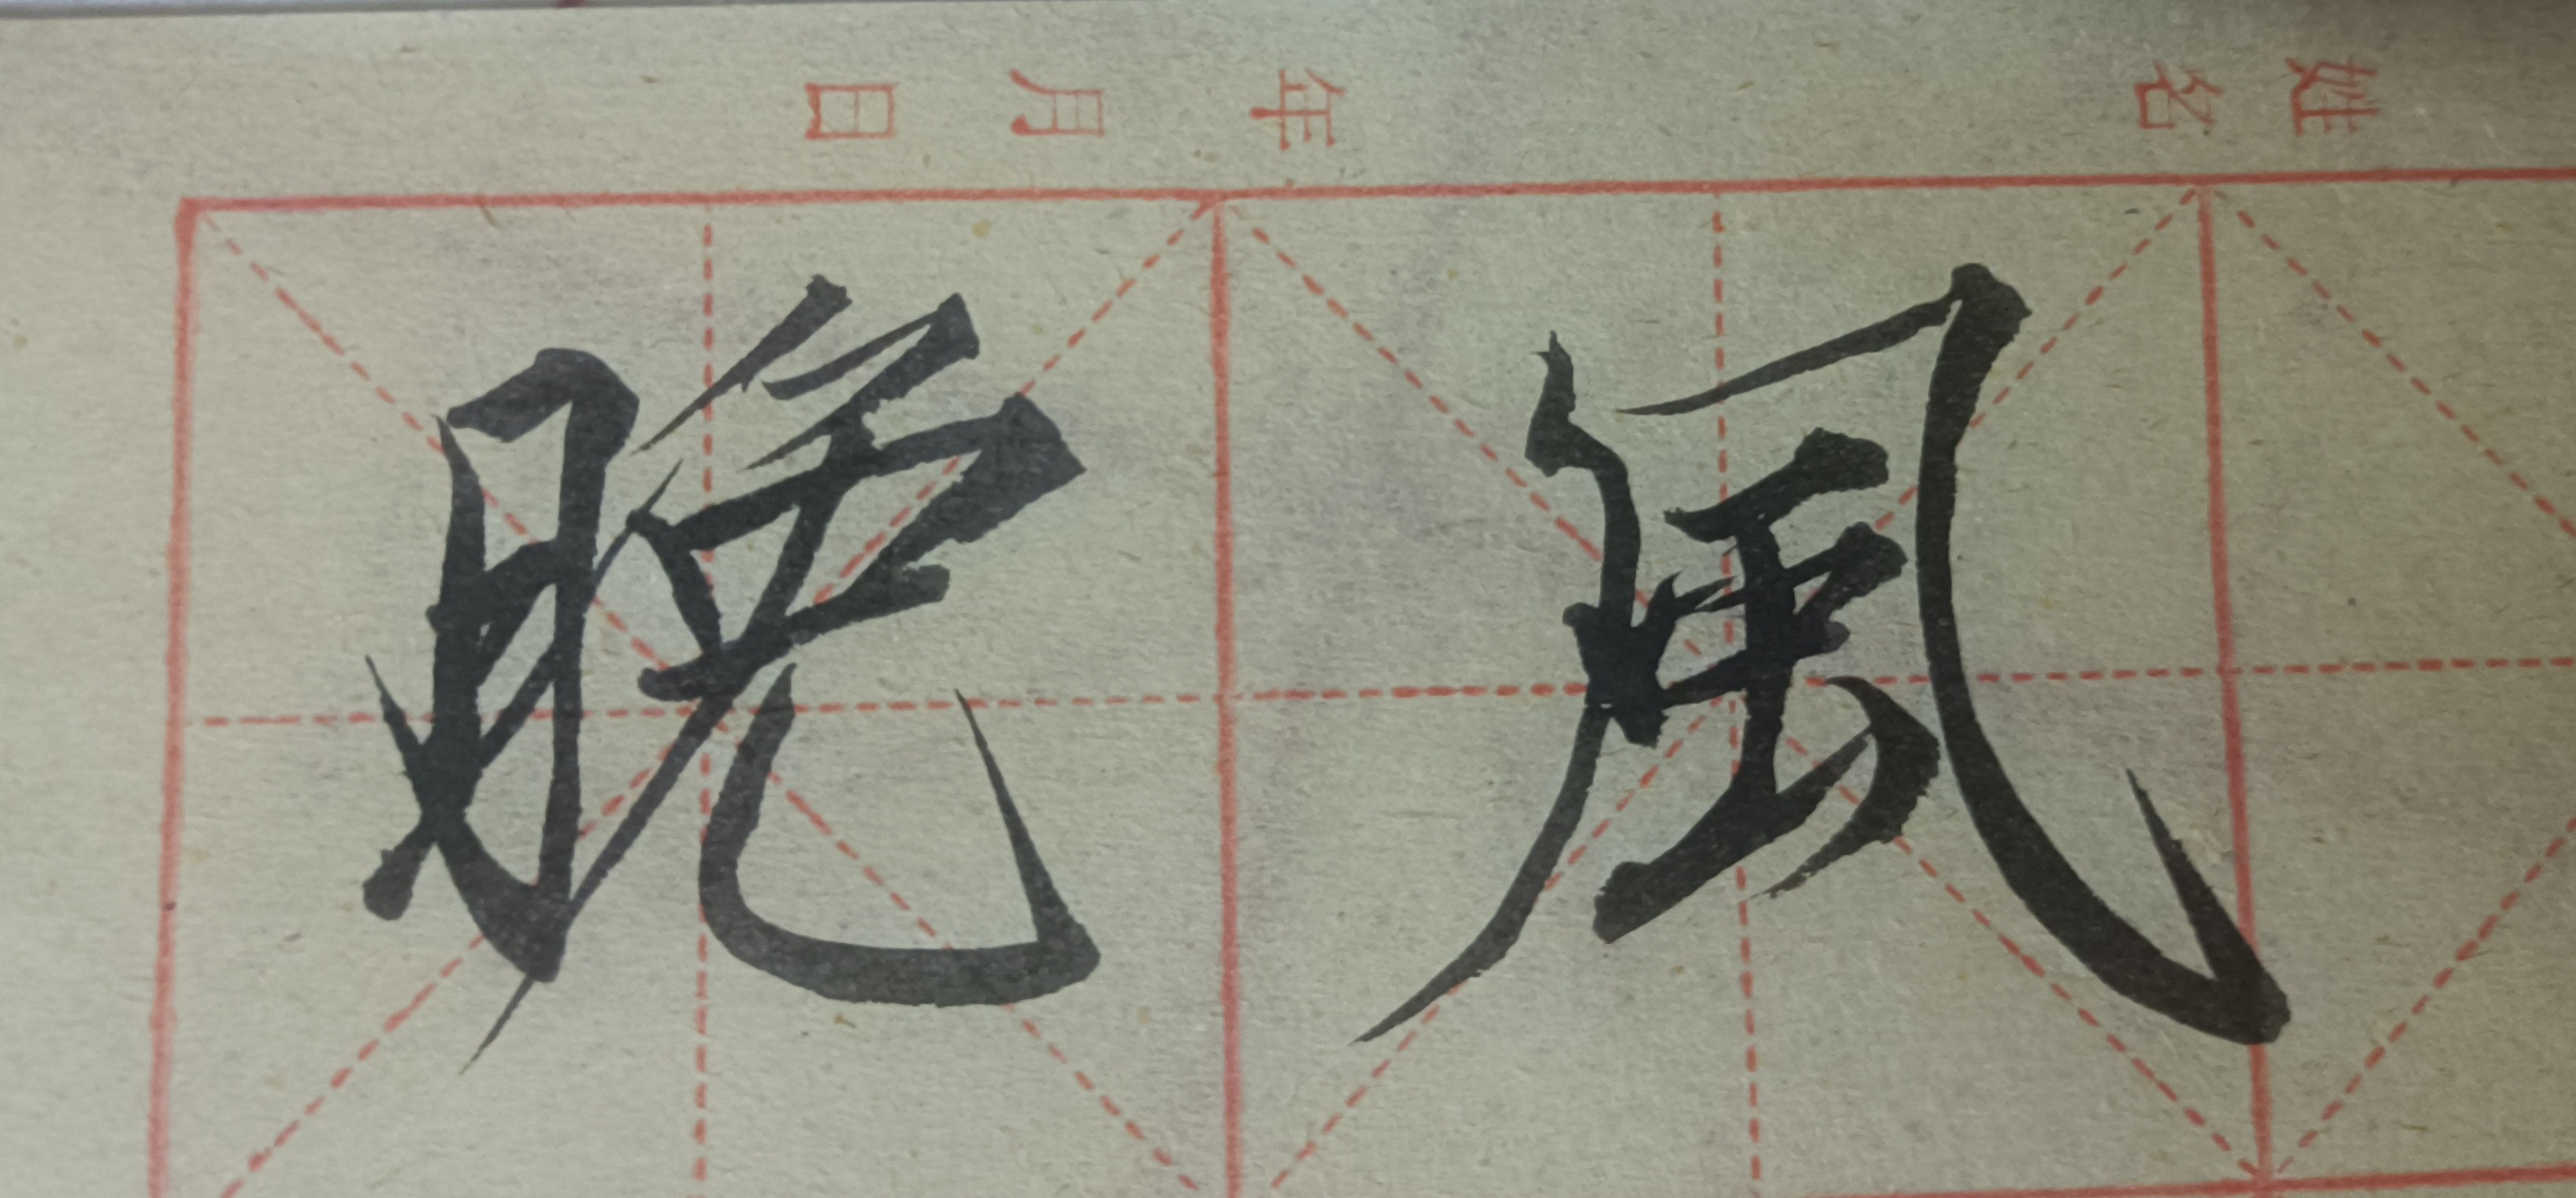 姓名 年 月 日
晚風